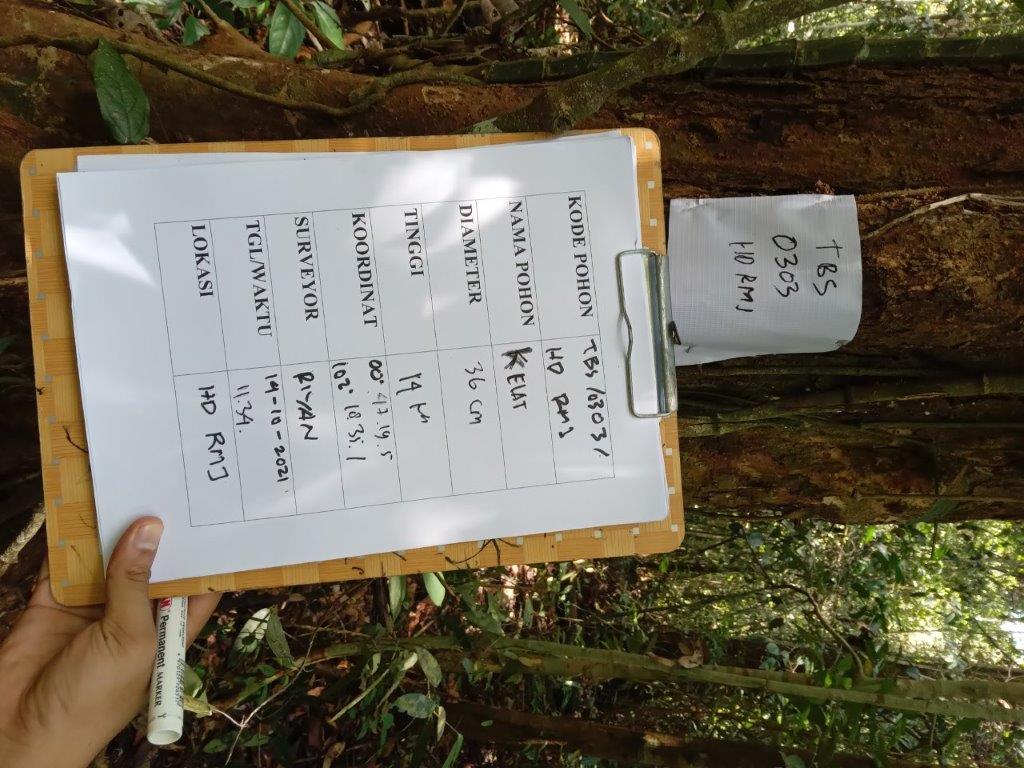 TBS
0303
HD RMJ
KODE POHON
TBS /0303/
HD RMJ
NAMA POHON
KELAT
DIAMETER
36 cm
TINGGI
14 m
KOORDINAT
00° 47.19.5
102° 18.35.1
SURVEYOR
RIYAN
TGL/WAKTU
14-10-2021
11.34.
LOKASI
HD RMJ
Permanent MARKER